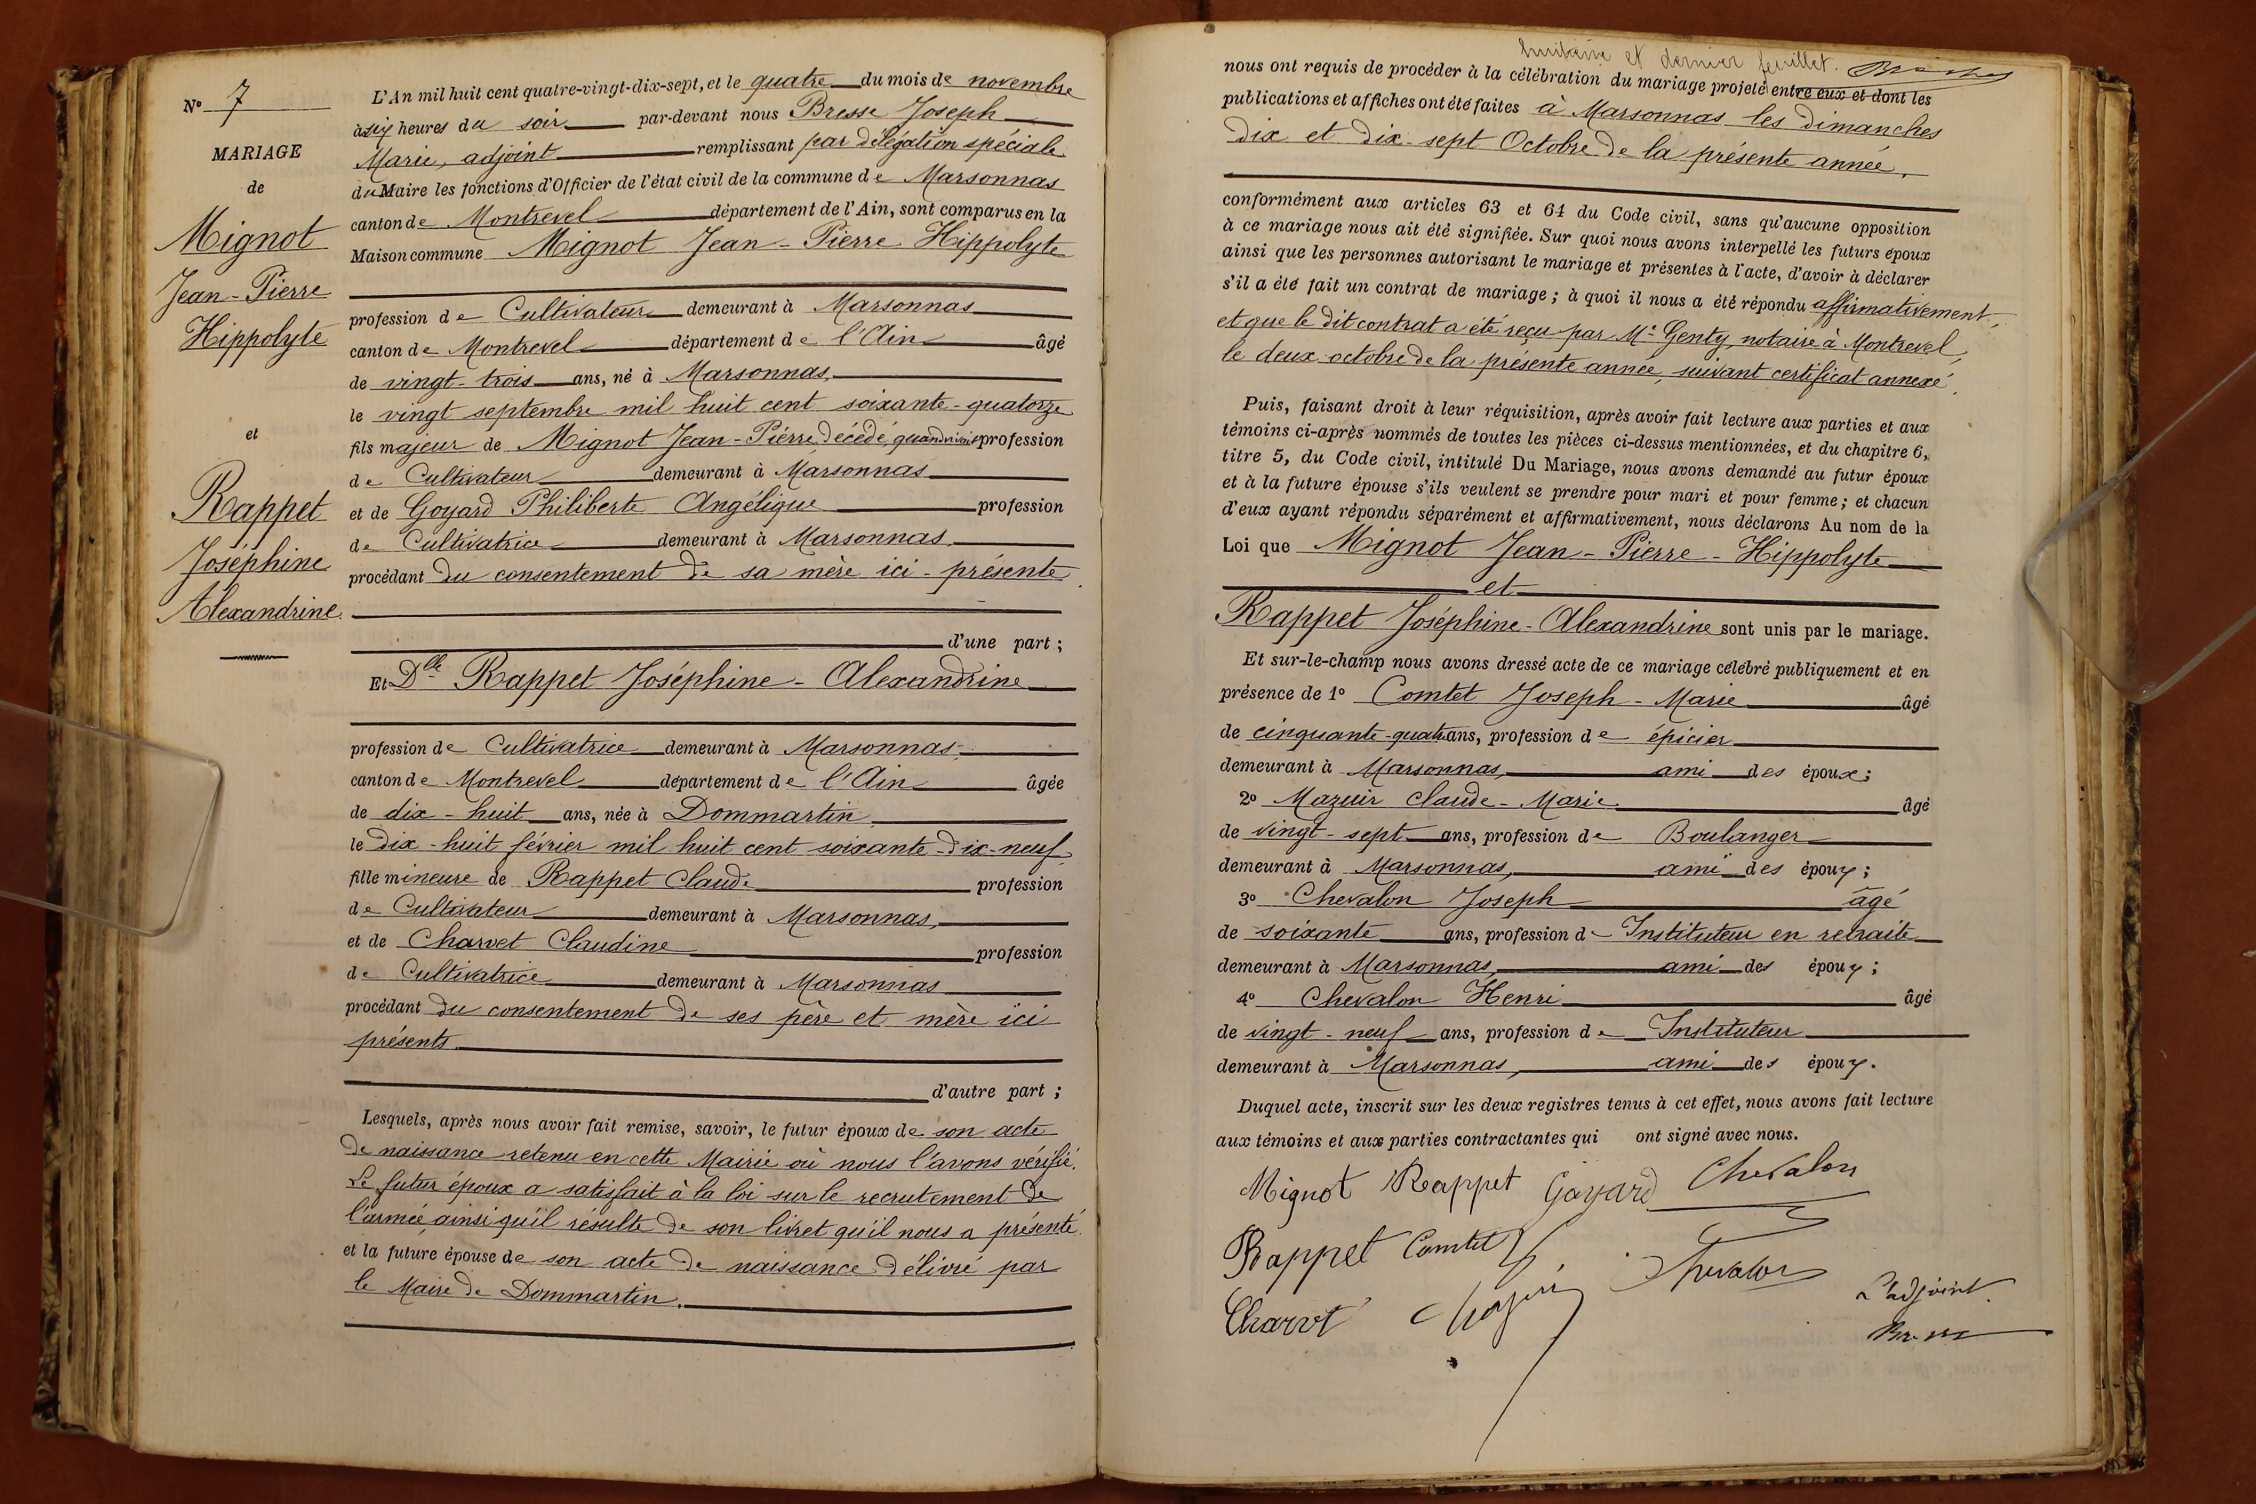 N° 7
MARIAGE
de
Mignot
Jean-Pierre
Hippolyte
et
Rappet
Joséphine
Alexandrine
L'An mil huit cent quatre-vingt-dix-sept, et le quatre du mois de novembre
à six heures du soir par-devant nous Bresse Joseph
Marie, adjoint remplissant par délégation spéciale
du Maire les fonctions d'Officier de l'état civil de la commune de Marsonnas
canton de Montrevel département de l'Ain, sont comparus en la
Maison commune Mignot Jean-Pierre Hippolyte
profession de Cultivateur demeurant à Marsonnas
canton de Montrevel département de l'Ain âgé
de vingt-trois ans, né à Marsonnas,
le vingt septembre mil huit cent soixante-quatorze
fils majeur de Mignot Jean-Pierre, décédé, quand vivait profession
de Cultivateur demeurant à Marsonnas
et de Goyard Philiberte Angélique profession
de Cultivatrice demeurant à Marsonnas
procédant du consentement de sa mère ici-présente
d'une part ;
Et Dlle Rappet Joséphine-Alexandrine
profession de Cultivatrice demeurant à Marsonnas,
canton de Montrevel département de l'Ain âgée
de dix-huit ans, née à Dommartin
le Dix-huit février mil huit cent soixante-dix-neuf
fille mineure de Rappet Claude profession
de Cultivateur demeurant à Marsonnas,
et de Charvet Claudine profession
de Cultivatrice demeurant à Marsonnas
procédant du consentement de ses père et mère ici
présents
d'autre part ;
Lesquels, après nous avoir fait remise, savoir, le futur époux de son acte
de naissance retenu en cette Mairie où nous l'avons vérifié.
Le futur époux a satisfait à la loi sur le recrutement de
l'armée, ainsi qu'il résulte de son livret qu'il nous a présenté.
et la future épouse de son acte de naissance délivré par
le Maire de Dommartin.
huitième et dernier feuillet.
nous ont requis de procéder à la célébration du mariage projeté entre eux et dont les
publications et affiches ont été faites à Marsonnas les dimanches
dix et dix-sept Octobre de la présente année,
conformément aux articles 63 et 64 du Code civil, sans qu'aucune opposition
à ce mariage nous ait été signifiée. Sur quoi nous avons interpellé les futurs époux
ainsi que les personnes autorisant le mariage et présentes à l'acte, d'avoir à déclarer
s'il a été fait un contrat de mariage ; à quoi il nous a été répondu affirmativement,
et que le dit contrat a été reçu par Me Genty, notaire à Montrevel,
le deux octobre de la présente année, suivant certificat annexé.
Puis, faisant droit à leur réquisition, après avoir fait lecture aux parties et aux
témoins ci-après nommés de toutes les pièces ci-dessus mentionnées, et du chapitre 6,
titre 5, du Code civil, intitulé Du Mariage, nous avons demandé au futur époux
et à la future épouse s'ils veulent se prendre pour mari et pour femme ; et chacun
d'eux ayant répondu séparément et affirmativement, nous déclarons Au nom de la
Loi que Mignot Jean-Pierre-Hippolyte
et
Rappet Joséphine-Alexandrine sont unis par le mariage.
Et sur-le-champ nous avons dressé acte de ce mariage célébré publiquement et en
présence de 1° Comtet Joseph-Marie âgé
de cinquante-quatre ans, profession de épicier
demeurant à Marsonnas, ami des époux ;
2° Mazuir Claude-Marie âgé
de vingt-sept ans, profession de Boulanger
demeurant à Marsonnas, ami des époux ;
3° Chevalon Joseph âgé
de soixante ans, profession d'Instituteur en retraite
demeurant à Marsonnas, ami des époux ;
4° Chevalon Henri âgé
de vingt-neuf ans, profession de Instituteur
demeurant à Marsonnas, ami des époux.
Duquel acte, inscrit sur les deux registres tenus à cet effet, nous avons fait lecture
aux témoins et aux parties contractantes qui ont signé avec nous.
Mignot Rappet Goyard Chevalon
Rappet Comtet Chevalon
Charvet
L'adjoint.
Bresse